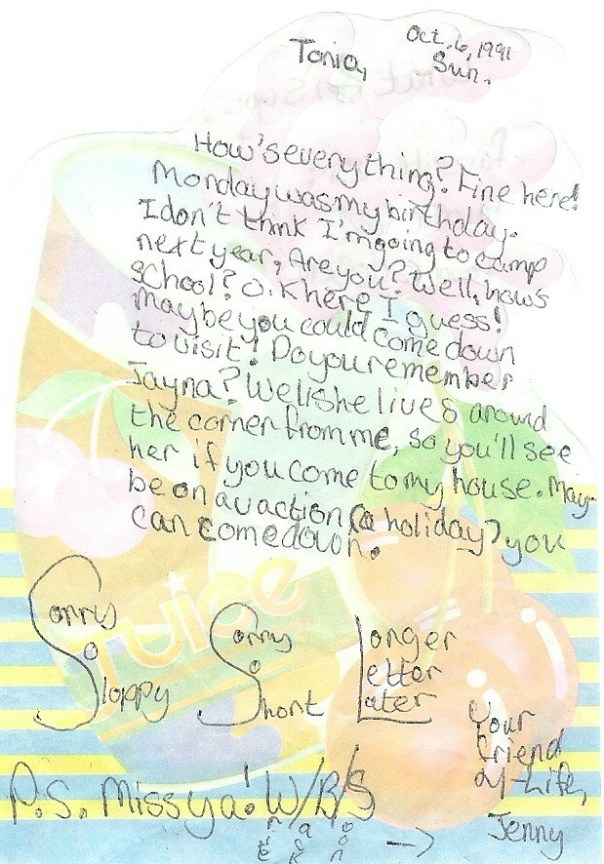 Oct. 6, 1991
Tonia, Sun.
How's everything? Fine here!
Monday was my birthday.
I don't think I'm going to camp
next year, Are you? Well, how's
school? O.K here I guess!
Maybe you could come down
to visit! Do you remember
Jayna? Well she lives around
the corner from me, so you'll see
her if you come to my house. May-
be on a vaction (a holiday) you
can come down.
Juice
Sorry So Sloppy
Sorry So Short
Longer Letter Later
Your
friend
4-Life,
Jenny
P.S. Miss ya! W/B/S
rite
ack
oon
→